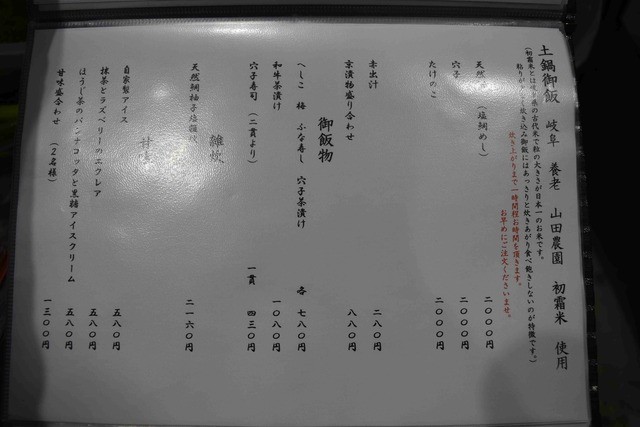 土鍋御飯 岐阜 養老 山田農園 初霜米 使用
(初霜米とは岐阜県の古代米で粒の大きさが日本一のお米です。
粘りが く炊き込み御飯にはあっさりと炊きあがり食べ飽きしないのが特徴です。)
炊き上がりまで一時間程お時間を頂きます。
お早めにご注文くださいませ。
天然 (塩鯛めし) 二〇〇〇円
穴子 二〇〇〇円
たけのこ 二〇〇〇円
赤出汁 二八〇円
京漬物盛り合わせ 八八〇円
御飯物
へしこ 梅 ふな寿し 穴子茶漬け 各 七八〇円
和牛茶漬け 一〇八〇円
穴子寿司 (二貫より) 一貫 四三〇円
雑炊
天然鯛柚子塩雑炊 二一六〇円
甘味
自家製アイス 五八〇円
抹茶とラズベリーのエクレア 五八〇円
ほうじ茶のパンナコッタと黒糖アイスクリーム 五八〇円
甘味盛合わせ (2名様) 一三〇〇円